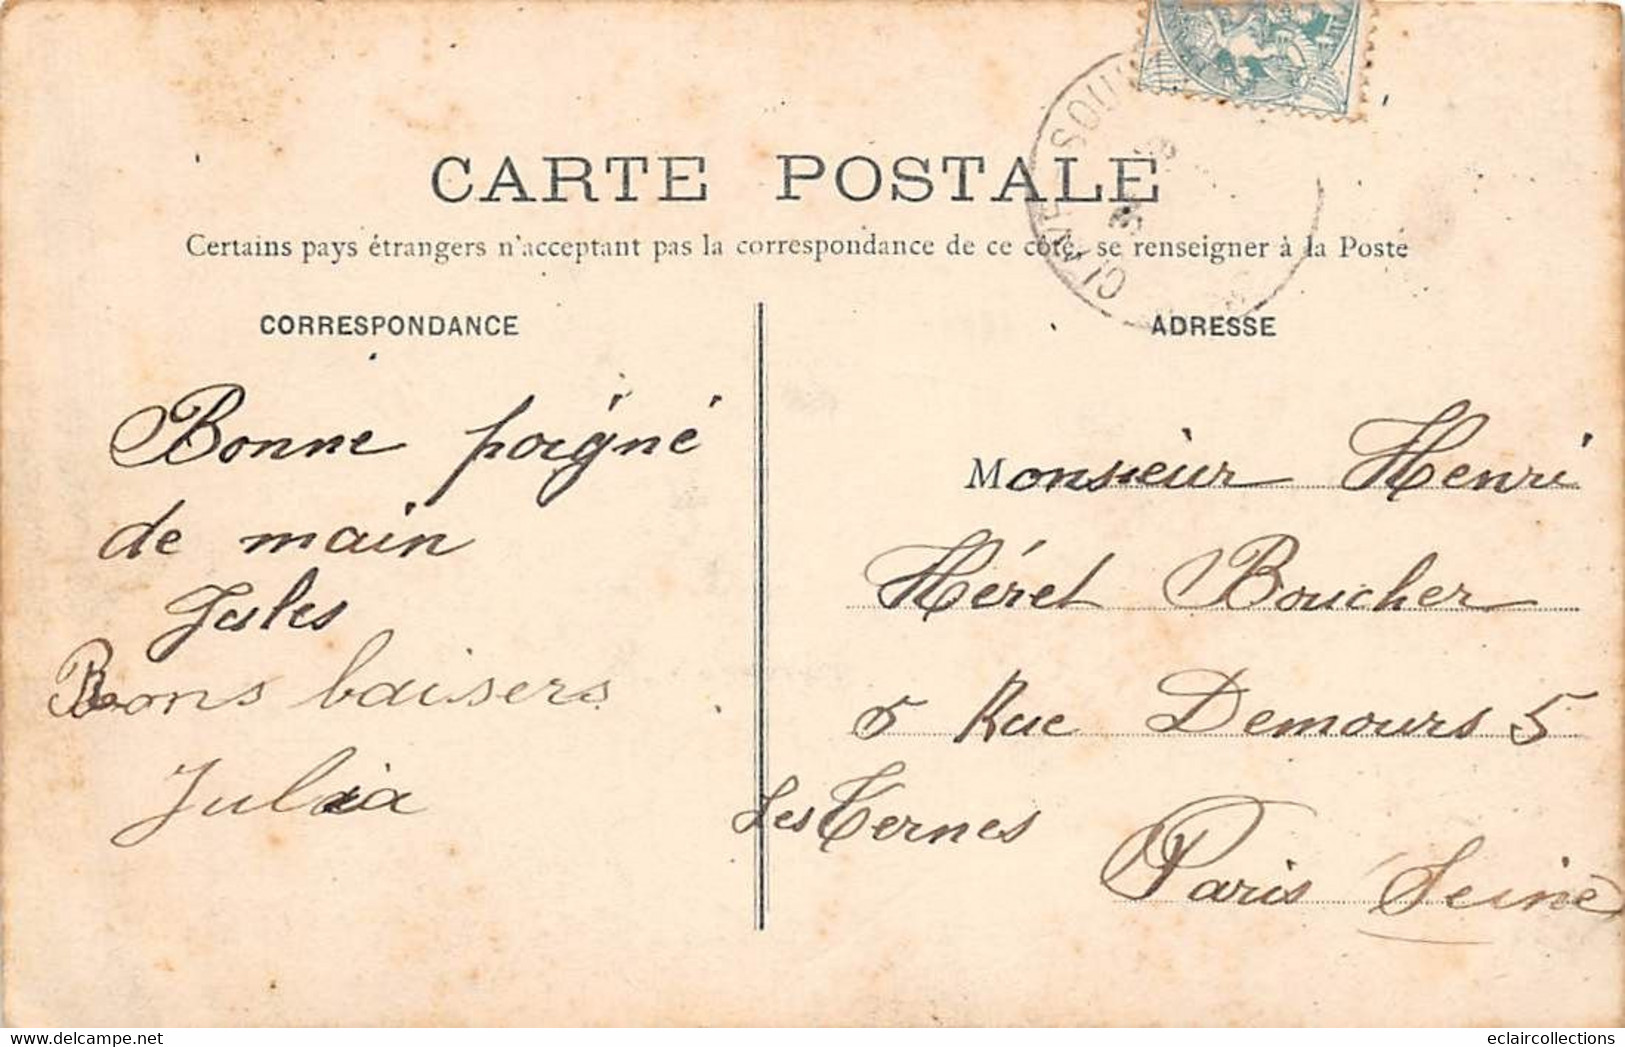 CARTE POSTALE
Certains pays étrangers n'acceptant pas la correspondance de ce côté, se renseigner à la Poste
CORRESPONDANCE
Bonne poigné
de main
Jules
Bons baisers
Julia
ADRESSE
Monsieur Henri
Héret Boucher
5 Rue Demours 5
Les Ternes
Paris Seine
www.delcampe.net
eclaircollections